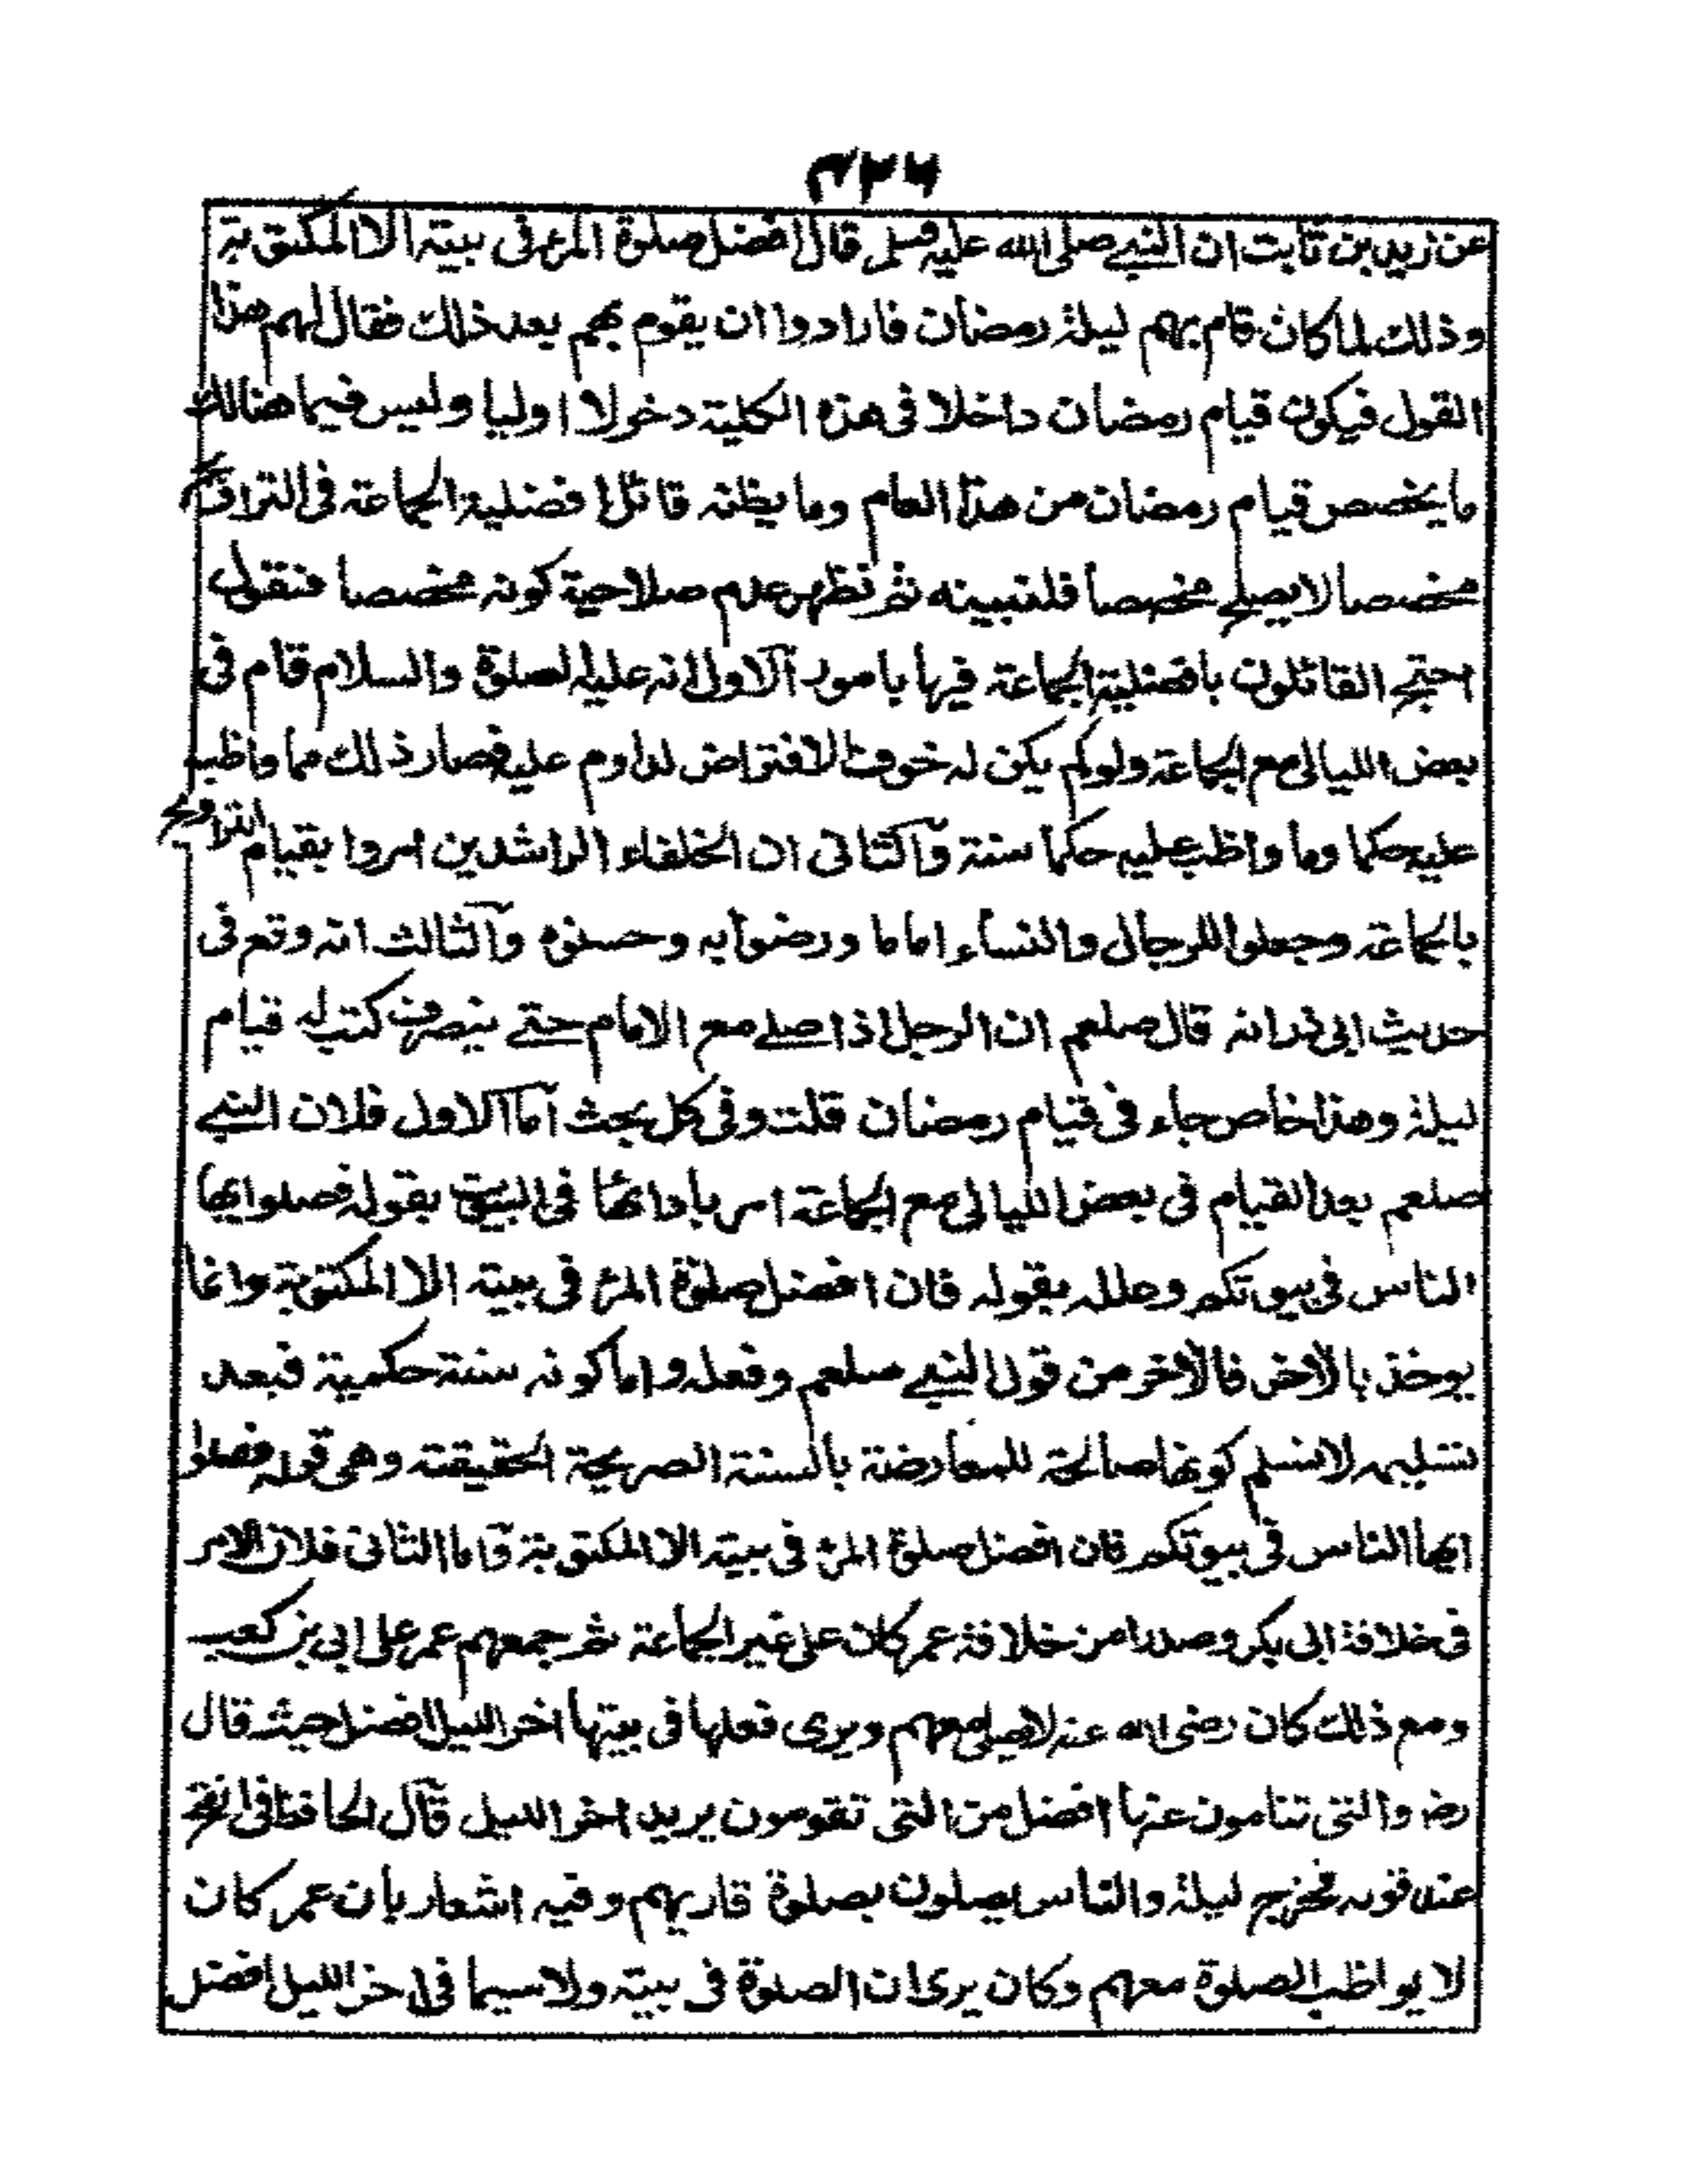 عن زيد بن ثابت ان النبي صلى الله عليه وسلم قال افضل صلوة المرء في بيته الا المكتوبة
وذلك لما كان قام بهم ليلة رمضان فارادوا ان يقوم بهم بعد ذلك فقال لهم هذا
القول فيكون قيام رمضان داخلا في هذه الكلية دخولا اوليا وليس فيما هنالك
ما يخصص قيام رمضان من هذا العام وما يظنه قائل افضلية الجماعة في التراويح
مخصصا لا يصلح مخصصا فلنبينه ثم نظهر عدم صلاحية كونه مخصصا فنقول
احتج القائلون بافضلية الجماعة فيها بامور الاول انه عليه الصلوة والسلام قام في
بعض الليالي مع الجماعة ولو لم يكن له خوف الافتراض لداوم عليه فصار ذلك مما واظب
عليه حكما وما واظب عليه حكما سنة والثاني ان الخلفاء الراشدين امروا بقيام التراويح
بالجماعة وجعلوا للرجال والنساء اماما ورضوا به وحسنوه والثالث انه وقع في
حديث ابي ذر انه قال صلعم ان الرجل اذا صلى مع الامام حتى ينصرف كتب له قيام
ليلة وهذا خاص جاء في قيام رمضان قلت وفي كل بحث اما الاول فلان النبي
صلعم بعد القيام في بعض الليالي مع الجماعة امر بادائها في البيوت بقوله فصلوا ايها
الناس في بيوتكم وعلله بقوله فان افضل صلوة المرء في بيته الا المكتوبة وانما
يوخذ بالاخر فالاخر من قول النبي صلعم وفعله واما كونه سنة حكمية فبعد
تسليمه لا نسلم كونها صالحة للمعارضة بالسنة الصريحة الحقيقة وهي قوله فصلوا
ايها الناس في بيوتكم فان افضل صلوة المرء في بيته الا المكتوبة واما الثاني فلان الامر
في خلافة ابي بكر وصدرا من خلافة عمر كان على غير الجماعة ثم جمعهم عمر على ابي بن كعب
ومع ذلك كان رضي الله عنه لا يصلي معهم ويرى فعلها في بيتها اخر الليل افضل حيث قال
رض والتي تنامون عنها افضل من التي تقومون يريد اخر الليل قال الحافظ في الفتح
عند قوله فخرج ليلة والناس يصلون بصلوة قاريهم وفيه اشعار بان عمر كان
لا يواظب الصلوة معهم وكان يرى ان الصلوة في بيته ولا سيما في اخر الليل افضل